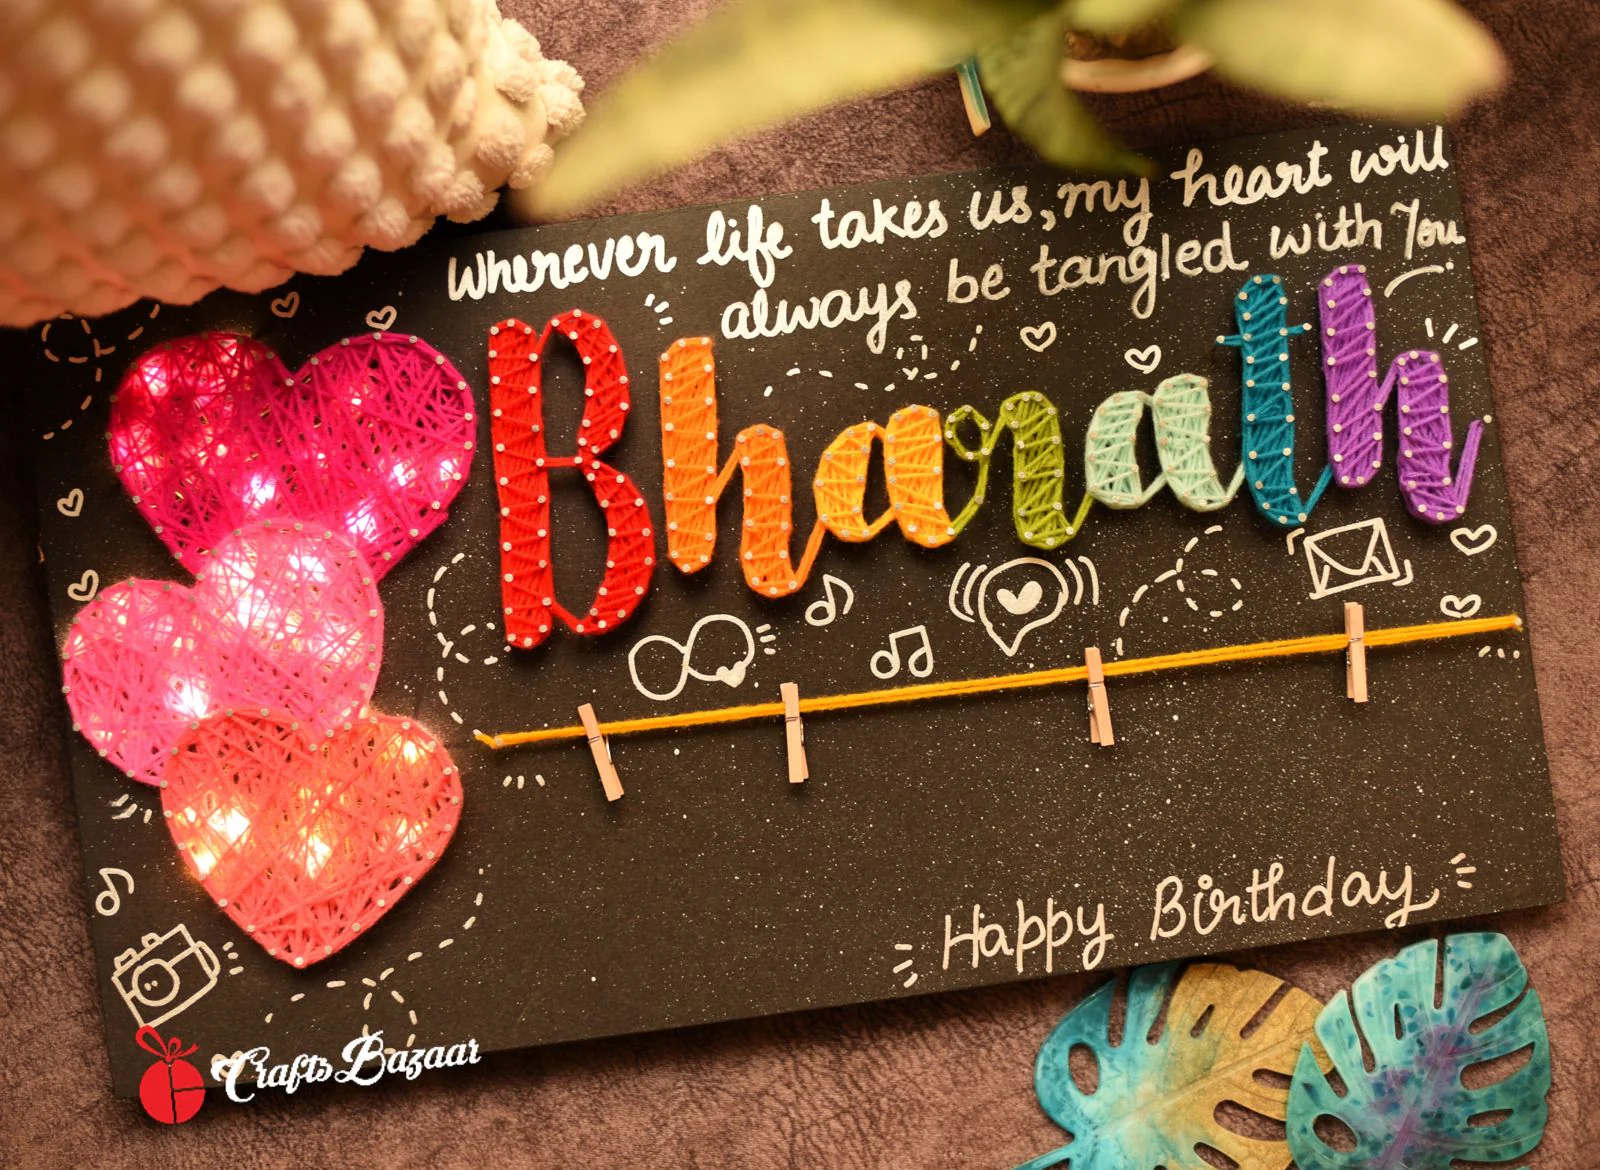 Wherever life takes us, my heart will
always be tangled with You
Bharath
Happy Birthday
Crafts Bazaar